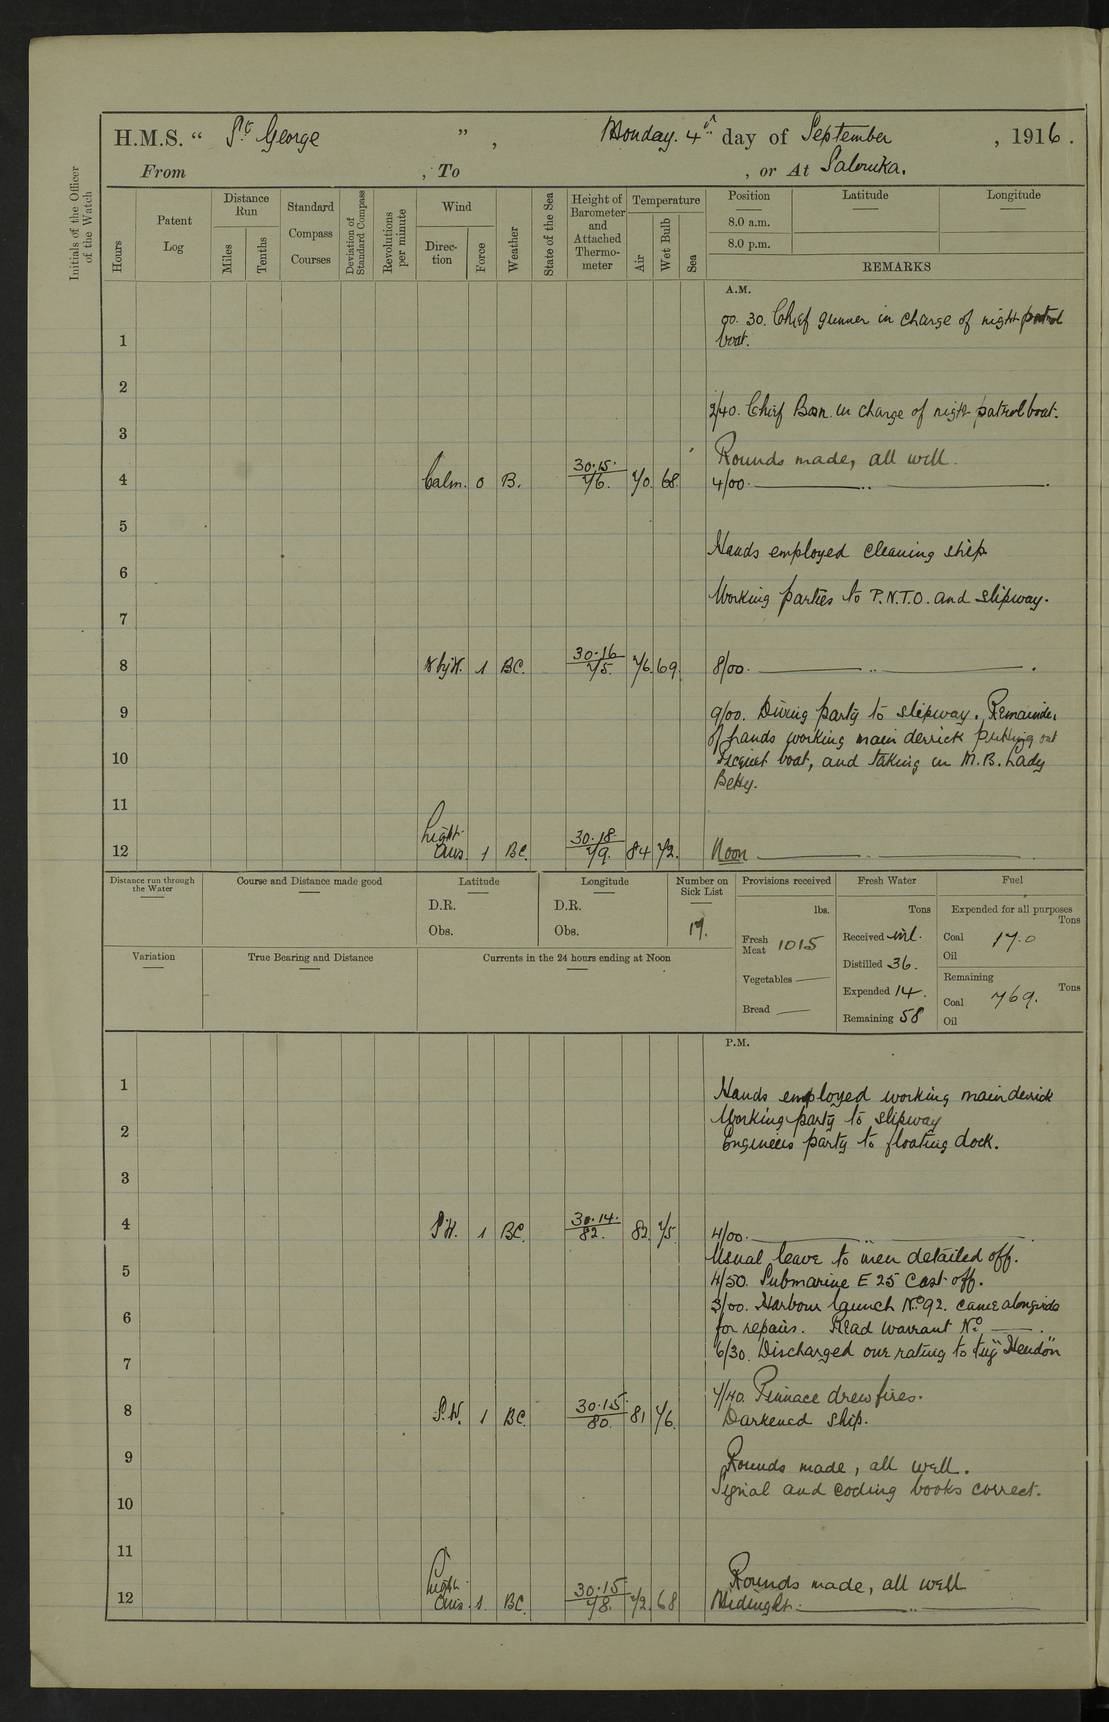 H.M.S. “ St. George ”, Monday. 4th day of September, 1916.
From , To , or At Salonika.
Initials of the Officer of the Watch
Hours
Patent Log
Distance Run
Miles
Tenths
Standard Compass Courses
Deviation of Standard Compass
Revolutions per minute
Wind
Direction
Force
Weather
State of the Sea
Height of Barometer and Attached Thermometer
Temperature
Air
Wet Bulb
Sea
Position Latitude Longitude
8.0 a.m.
8.0 p.m.
REMARKS
A.M.
00.30. Chief gunner in charge of night patrol
1 boat.
2
2/40. Chief Bosn. in charge of night patrol boat.
3
Rounds made, all well.
4 Calm. 0 B. 30.15. 76. 70. 68. 4/00.
5
Hands employed cleaning ship
6
Working parties to P.N.T.O. and slipway.
7
8 1 BC. 30.16 75. 76. 69. 8/00.
9 9/00. Diving party to slipway. Remainder
of hands working main derrick putting out
10 picquet boat, and taking in M.B. Lady
Betty.
11
12 Light airs. 1 BC. 30.18. 79. 84 72. Noon
Distance run through the Water
Course and Distance made good
Latitude
D.R.
Obs.
Longitude
D.R.
Obs.
Number on Sick List
19.
Provisions received
lbs.
Fresh Meat 1015
Vegetables —
Bread —
Fresh Water
Tons
Received nil.
Distilled 36.
Expended 14.
Remaining 58
Fuel
Expended for all purposes
Tons
Coal 17.0
Oil
Remaining
Tons
Coal 769.
Oil
Variation
True Bearing and Distance
Currents in the 24 hours ending at Noon
P.M.
1 Hands employed working main derrick
Working party to slipway
2 Engineers party to floating dock.
3
4 S.W. 1 BC. 30.14. 82. 82. 75. 4/00.
Usual leave to men detailed off.
5 4/50. Submarine E 25 cast off.
Harbour launch No. 92. came alongside
6 for repairs. Read warrant No. —.
6/30. Discharged one rating to tug "Hendon"
7
7/40. Pinnace drew fires.
8 S.W. 1 BC. 30.15. 80. 81 76. Darkened ship.
9 Rounds made, all well.
Signal and coding books correct.
10
11
Rounds made, all well
12 Light airs. 1 BC. 30.15. 78. 72. 68 Midnight.